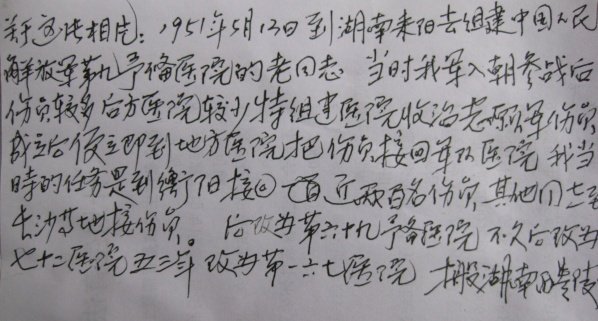 关于这张相片：1951年5月12日到湖南耒阳去组建中国人民
解放军第九予备医院的老同志 当时我军入朝参战后
伤员较多后方医院较少特组建医院收治志愿军伤员
成立后便立即到地方医院把伤员接回军队医院 我当
時的任务是到衡阳接回一百近两百名伤员 其他同志至
长沙等地接伤员。 后改为第六十九予备医院 不久后改为
七十二医院 五三年。改为第一六七医院 搬湖南醴陵